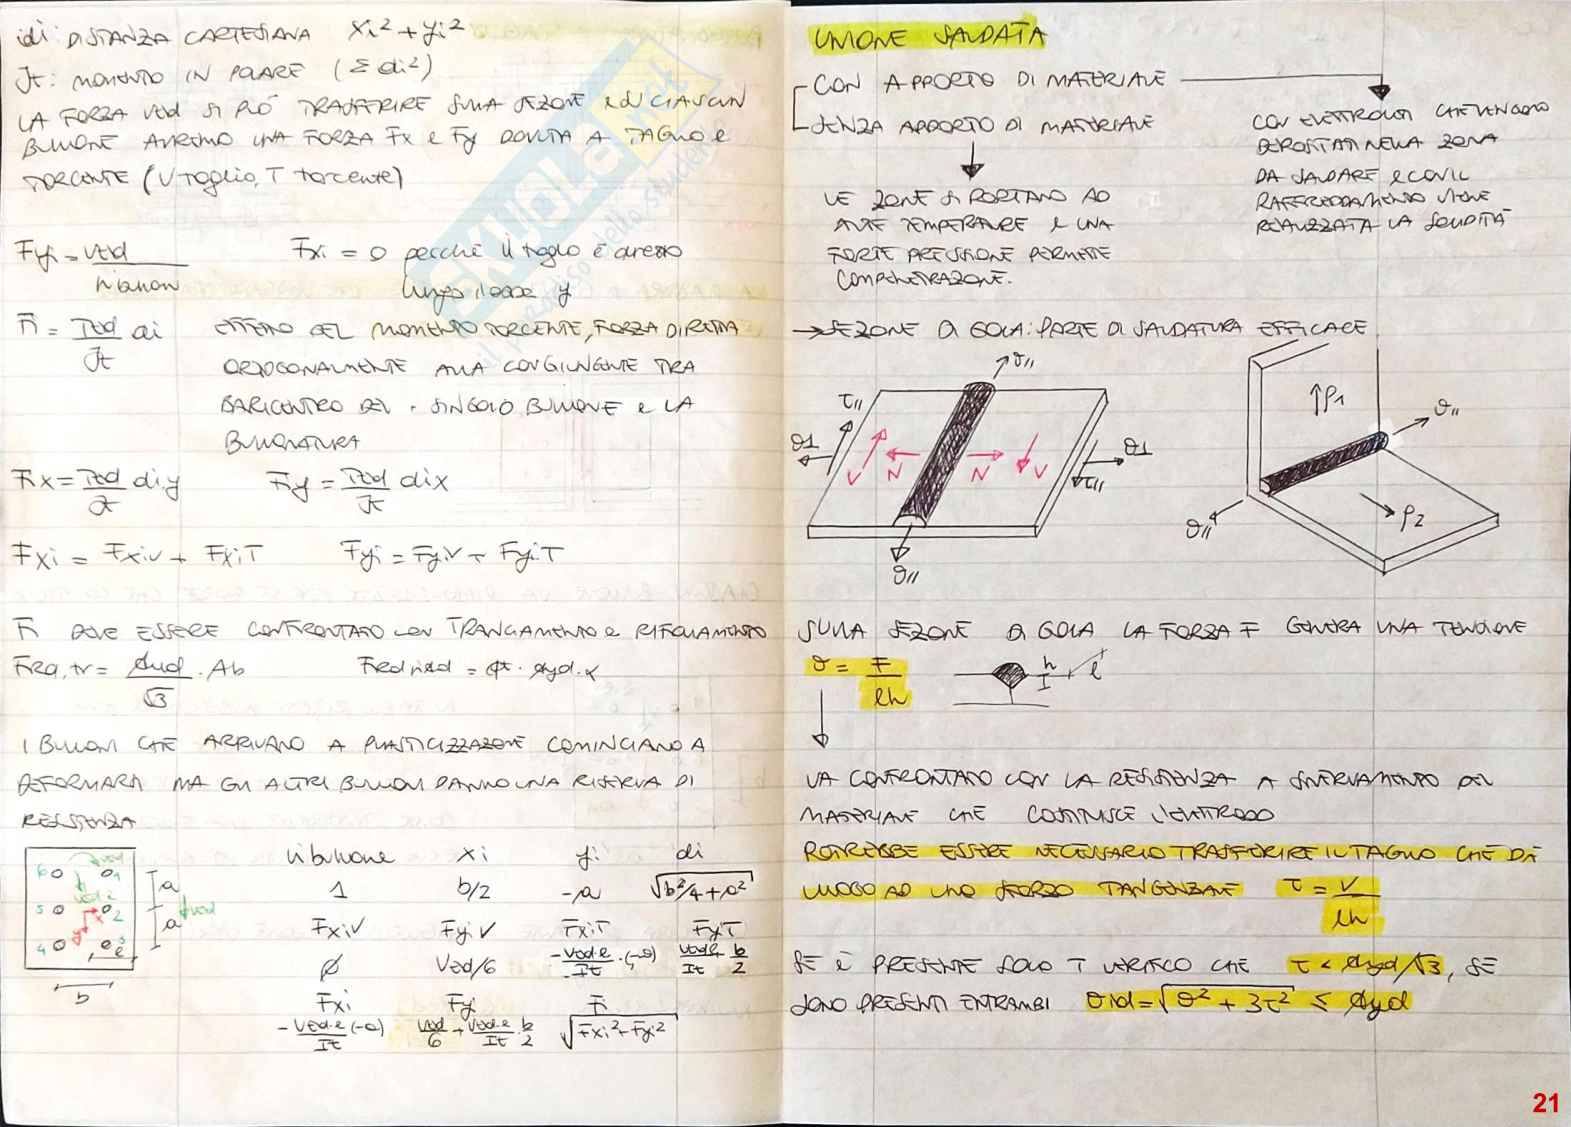 di: DISTANZA CARTESIANA Xi² + yi²
Jt: MOMENTO IN POLARE (Σ di²)
LA FORZA Ved SI PUÒ TRASFERIRE SULLA SEZIONE e SU CIASCUN
BULLONE AVREMO UNA FORZA Fx e Fy DOVUTA A TAGLIO e
TORCENTE (V taglio, T torcente)
Fyi = Ved / n bulloni
Fxi = 0 perchè il taglio è diretto
lungo l'asse y
Fi = Ted / Jt di
EFFETTO DEL MOMENTO TORCENTE, FORZA DIRETTA
ORTOGONALMENTE ALLA CONGIUNGENTE TRA
BARICENTRO DEL SINGOLO BULLONE e LA
BULLONATURA
Fix = Ted / Jt diy
Fiy = Ted / Jt dix
Fxi = FxiV + FxiT
Fyi = FyiV + FyiT
Fi DEVE ESSERE CONFRONTATO CON TRANCIAMENTO e RIFOLLAMENTO
FRd,tr = fud / √3 · Ab
I BULLONI CHE ARRIVANO A PLASTICIZZAZIONE COMINCIANO A
DEFORMARSI MA GLI ALTRI BULLONI DANNO UNA RISERVA DI
RESISTENZA
6
1
5
2
4
3
e
x
y
Ved
a
a
b
n bullone xi yi di
1 b/2 -a √b²/4 + a²
FxiV FyiV FxiT FyT
∅ Ved/6 -Ved·e / It · (-a) Ved·e / It b/2
Fxi Fy Fi
-Ved·e / It (-a) Ved / 6 + Ved·e / It · b/2 √Fxi² + Fyi²
UNIONE SALDATA
CON APPORTO DI MATERIALE
SENZA APPORTO DI MATERIALE
CON ELETTRODI CHE VENGONO
DEPOSITATI NELLA ZONA
DA SALDARE e CON IL
RAFFREDDAMENTO VIENE
REALIZZATA LA SOLIDITÀ
LE ZONE SI PORTANO AD
ALTE TEMPERATURE E UNA
FORTE PRESSIONE PERMETTE
COMPENETRAZIONE.
→ SEZIONE DI GOLA: PARTE DI SALDATURA EFFICACE
σ//
τ//
σ⊥
V
N
N
V
σ⊥
τ//
σ//
P1
σ//
σ//
P2
SULLA SEZIONE DI GOLA LA FORZA F GENERA UNA TENSIONE
σ = F / lh
h
l
VA CONFRONTATO CON LA RESISTENZA A SNERVAMENTO DEL
MATERIALE CHE COSTITUISCE L'ELETTRODO
POTREBBE ESSERE NECESSARIO TRASFERIRE IL TAGLIO CHE DÀ
LUOGO AD UNO SFORZO TANGENZIALE τ = V / lh
SE È PRESENTE SOLO τ VERIFICO CHE τ < fyd/√3, SE
SONO PRESENTI ENTRAMBI σid = √σ² + 3τ² ≤ fyd
SKUOLA.net
21